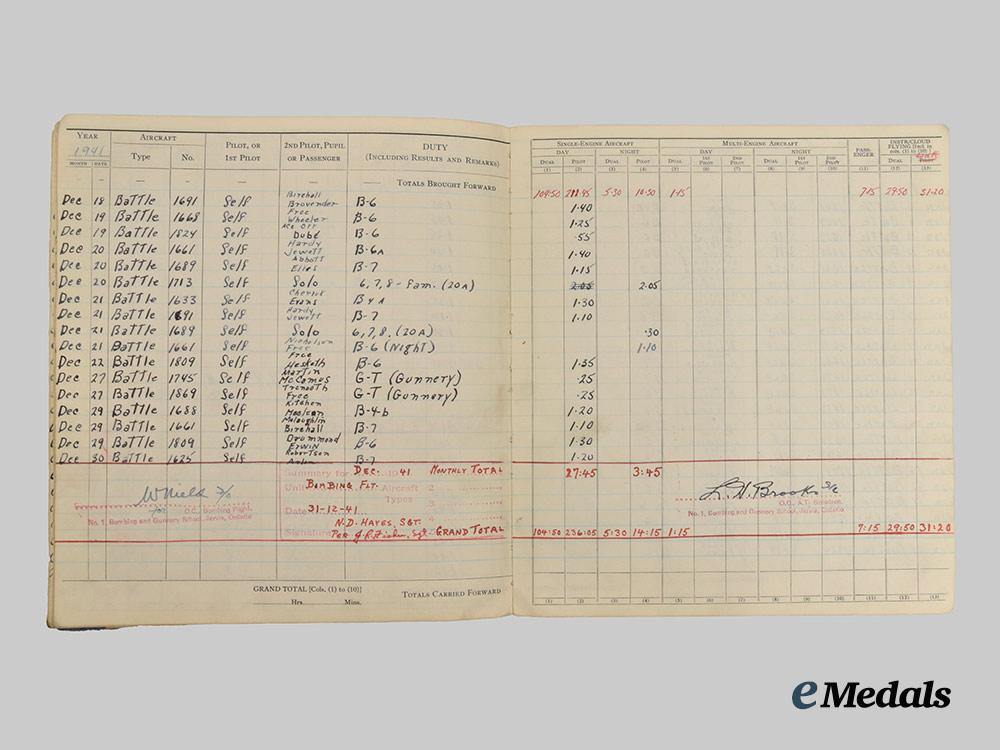 YEAR AIRCRAFT PILOT, OR 1ST PILOT 2ND PILOT, PUPIL OR PASSENGER DUTY (INCLUDING RESULTS AND REMARKS)
1941 Type No.
MONTH DATE
— — — TOTALS BROUGHT FORWARD
SINGLE-ENGINE AIRCRAFT MULTI-ENGINE AIRCRAFT PASS-ENGER INSTR/CLOUD FLYING
DAY NIGHT DAY NIGHT
DUAL PILOT DUAL PILOT DUAL 1ST PILOT 2ND PILOT DUAL 1ST PILOT 2ND PILOT DUAL PILOT
(1) (2) (3) (4) (5) (6) (7) (8) (9) (10) (11) (12) (13)
5·30 10·50 1·15 7·15 29·50 31·20
Birchall
Dec 18 Battle 1691 Self Brovender B-6 1·40
Free
Dec 19 Battle 1668 Self Wheeler B-6 1·25
Ace Orr
Dec 19 Battle 1824 Self Dubé B-6 ·55
Hardy
Dec 20 Battle 1661 Self Jewett B-6A 1·40
Abbott
Dec 20 Battle 1689 Self B-7 1·15
Dec 20 Battle 1713 Self Solo 6,7,8- Fam. (20A) 2·05 2·05
Dec 21 Battle 1633 Self Evans B4A 1·30
Hardy
Dec 21 Battle 1691 Self Jewett B-7 1·10
Dec 21 Battle 1689 Self Solo 6,7,8. (20A) ·30
Nicholson
Dec 21 Battle 1661 Self Free B-6 (Night) 1·10
Free
Dec 22 Battle 1809 Self Hesketh B-6 1·35
Martin
Dec 27 Battle 1745 Self McCombs G-T (Gunnery) ·25
Dec 27 Battle 1869 Self Free G-T (Gunnery) ·25
Kitchen
Dec 29 Battle 1688 Self B-4-b 1·20
McLaughlin
Dec 29 Battle 1661 Self Birchall B-7 1·10
Drummond
Dec 29 Battle 1809 Self Erwin B-6 1·30
Robertson
Dec 30 Battle 1625 Self B-7 1·20
Summary for DEC. 1941 MONTHLY TOTAL 27:45 3:45
Unit BOMBING FLT. Aircraft 2
Types 3
Date 31-12-41
O.C. Bombing Flight,
No. 1 Bombing and Gunnery School, Jarvis, Ontario
L. H. Brooks S/L
No. 1, Bombing and Gunnery School, Jarvis, Ontario
N.D. HAYES, SGT. 4
Signature Per Sgt. GRAND TOTAL 104:50 236:05 5:30 14:15 1:15 7:15 29:50 31:20
GRAND TOTAL [Cols. (1) to (10)]
Hrs. Mins.
TOTALS CARRIED FORWARD
(1) (2) (3) (4) (5) (6) (7) (8) (9) (10) (11) (12) (13)
eMedals